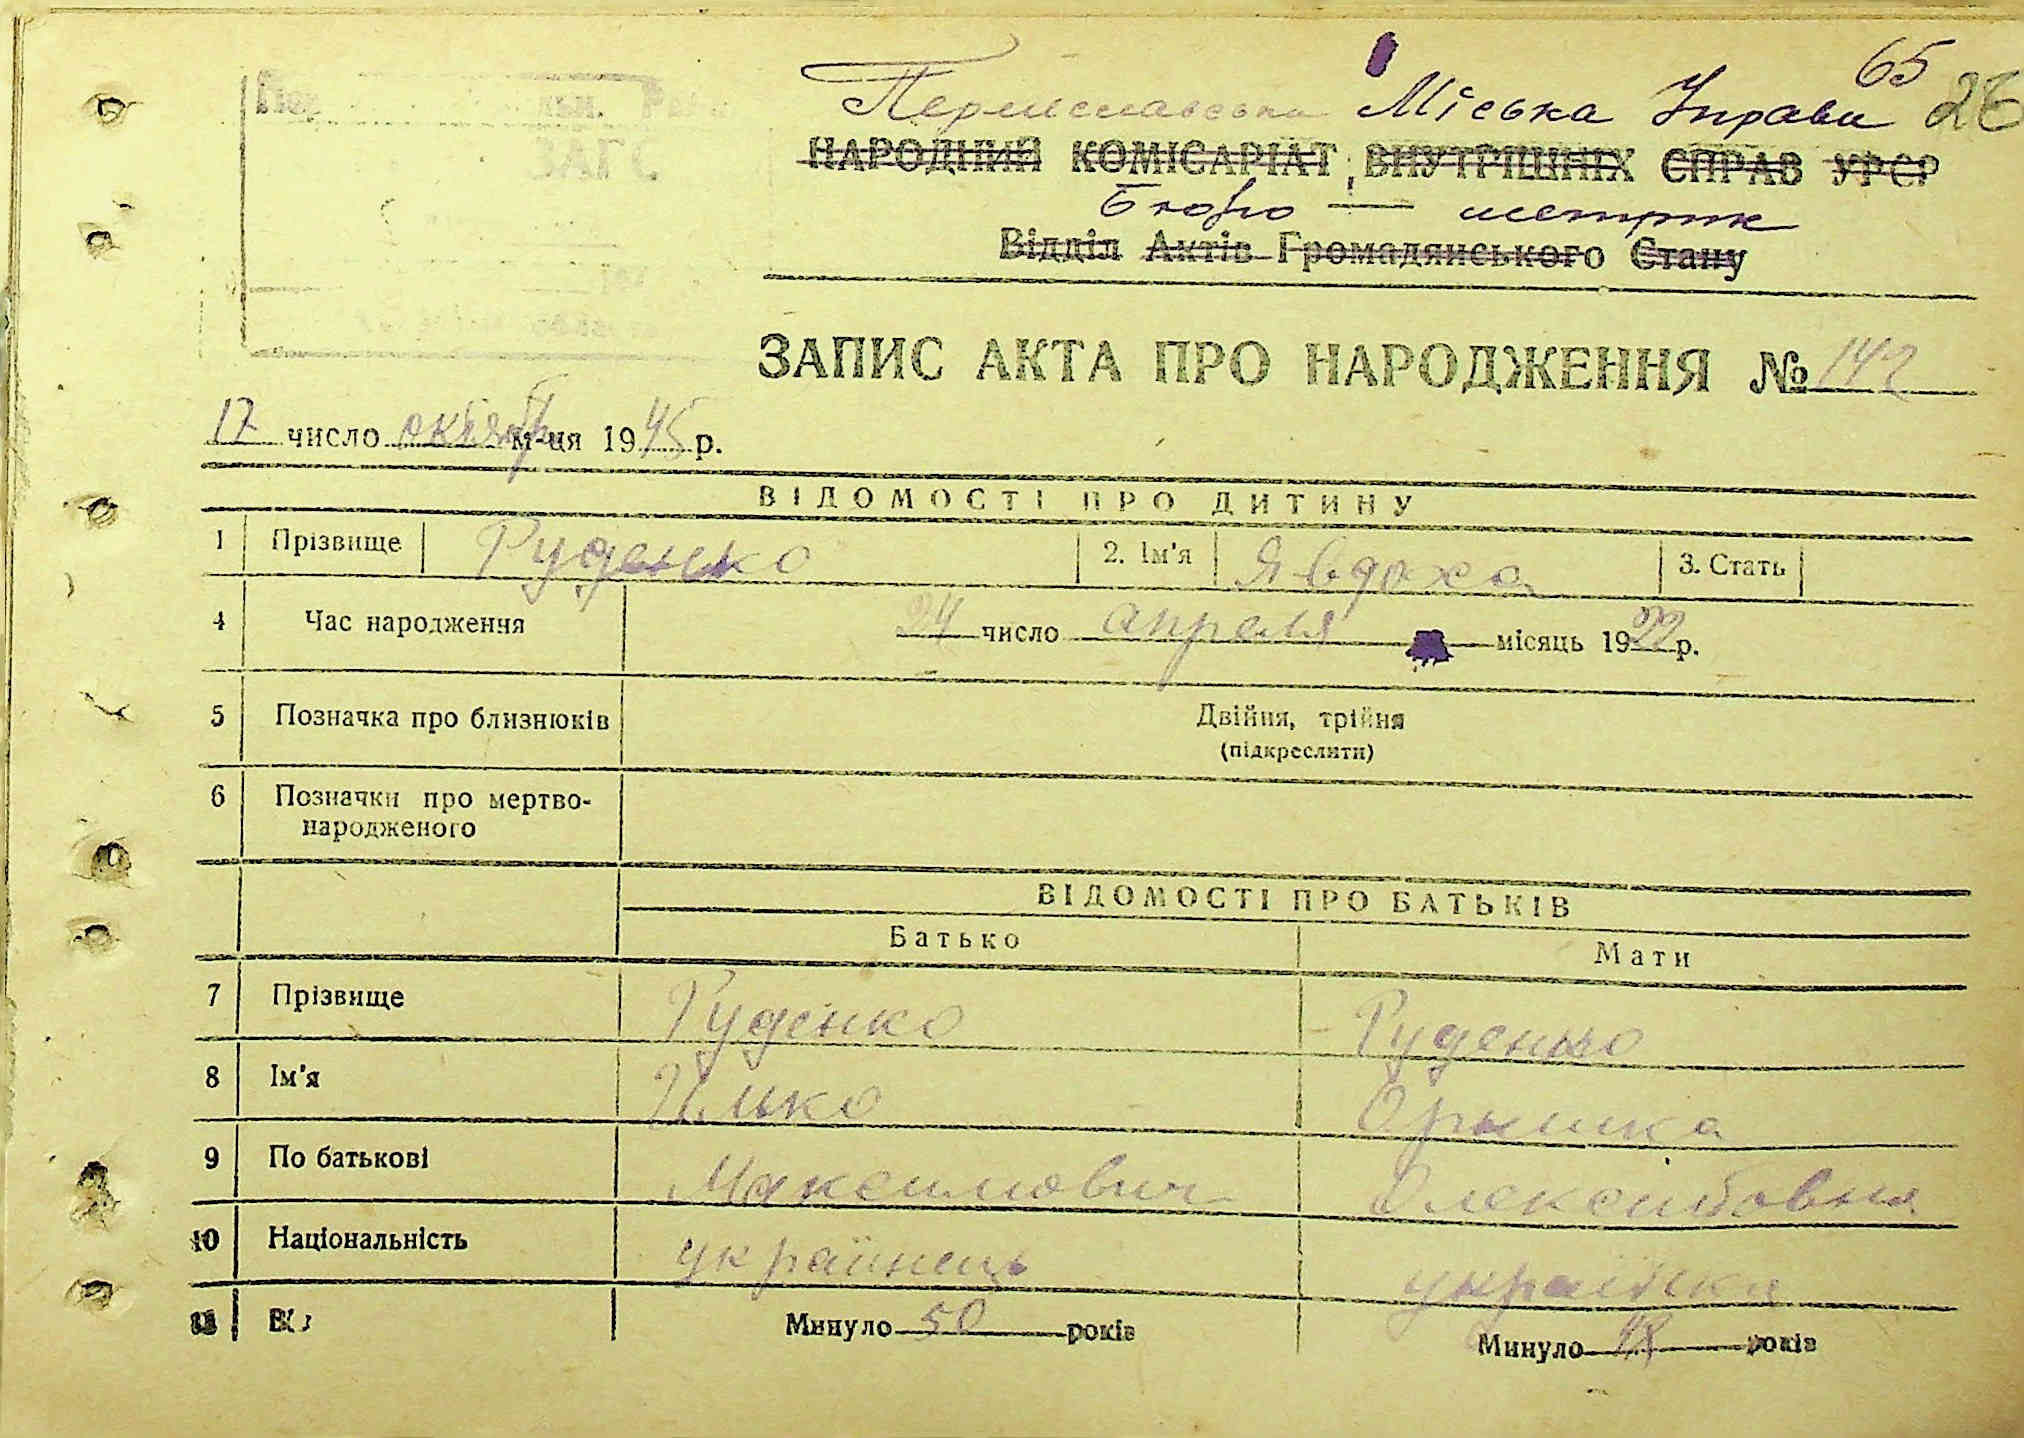 65
Переяславська Міська Управа 26
НАРОДНИЙ КОМІСАРІАТ ВНУТРІШНІХ СПРАВ УРСР
Бюро — метрик
Відділ Актів Громадянського Стану
ЗАГС
ЗАПИС АКТА ПРО НАРОДЖЕННЯ № 142
17 число октябр м-ця 1945 р.
ВІДОМОСТІ ПРО ДИТИНУ
1 Прізвище Руденко 2. Ім'я Явдоха 3. Стать
4 Час народження 24 число апреля місяць 1922 р.
5 Позначка про близнюків Двійня, трійня
(підкреслити)
6 Позначки про мертво-
народженого
ВІДОМОСТІ ПРО БАТЬКІВ
Батько Мати
7 Прізвище Руденко Руденко
8 Ім'я Илько Орышка
9 По батькові Максимович Олексиївна
10 Національність українець українка
11 Минуло 50 років Минуло 48 років